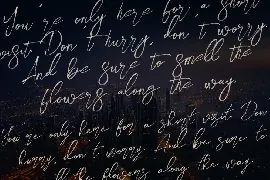 You're only here for a short
visit. Don't hurry, don't worry
And be sure to smell the
flowers along the way
You're only here for a short visit. Don't
hurry, don't worry. And be sure to
the flowers along the way.